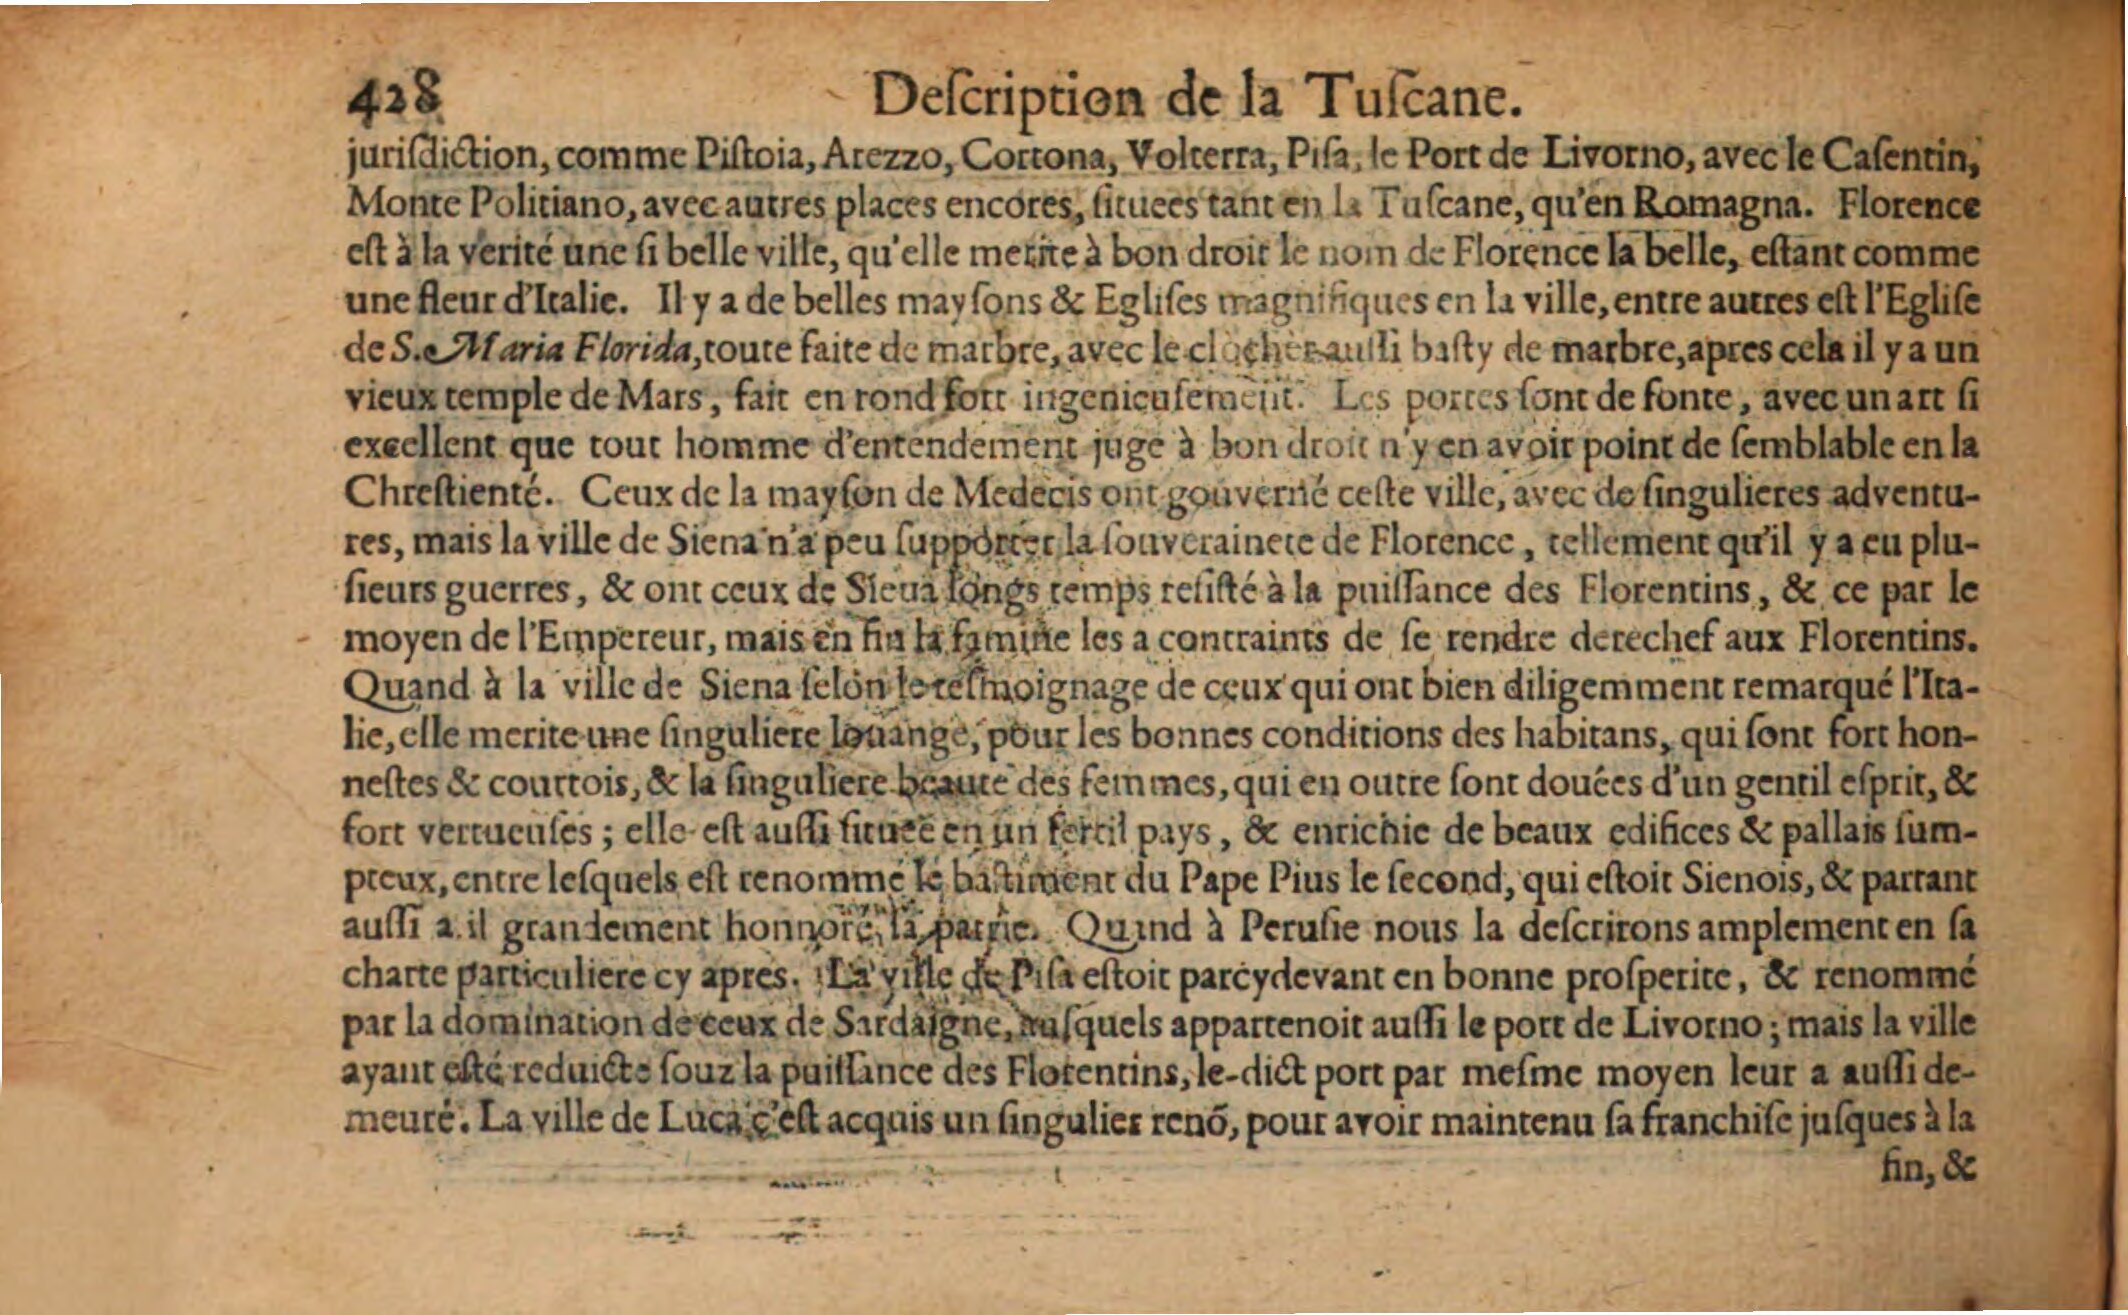 428 Deſcription de la Tuſcane.
juriſdiction, comme Piſtoia, Arezzo, Cortona, Volterra, Piſa, le Port de Livorno, avec le Caſentin,
Monte Politiano, avec autres places encores, ſituees tant en la Tuſcane, qu'en Romagna. Florence
eſt à la verité une ſi belle ville, qu'elle merite à bon droit le nom de Florence la belle, eſtant comme
une fleur d'Italie. Il y a de belles mayſons & Egliſes magnifiques en la ville, entre autres eſt l'Egliſe
de S. Maria Florida, toute faite de marbre, avec le clocher auſſi baſty de marbre, apres cela il y a un
vieux temple de Mars, fait en rond fort ingenieuſement. Les portes ſont de fonte, avec un art ſi
excellent que tout homme d'entendement juge à bon droit n'y en avoir point de ſemblable en la
Chreſtienté. Ceux de la mayſon de Medecis ont gouverné ceſte ville, avec de ſingulieres adventu-
res, mais la ville de Siena n'a peu ſupporter la ſouverainete de Florence, tellement qu'il y a eu plu-
ſieurs guerres, & ont ceux de Siena longs temps reſiſté à la puiſſance des Florentins, & ce par le
moyen de l'Empereur, mais en fin la famine les a contraints de ſe rendre derechef aux Florentins.
Quand à la ville de Siena ſelon le teſmoignage de ceux qui ont bien diligemment remarqué l'Ita-
lie, elle merite une ſinguliere louange, pour les bonnes conditions des habitans, qui ſont fort hon-
neſtes & courtois, & la ſinguliere beauté des femmes, qui en outre ſont douées d'un gentil eſprit, &
fort vertueuſes; elle eſt auſſi ſituée en un fertil pays, & enrichie de beaux edifices & pallais ſum-
pteux, entre leſquels eſt renommé le baſtiment du Pape Pius le ſecond, qui eſtoit Sienois, & partant
auſſi a il grandement honnoré ſa patrie. Quand à Peruſie nous la deſcrirons amplement en ſa
charte particuliere cy apres. La ville de Piſa eſtoit parcydevant en bonne proſperite, & renommé
par la domination de ceux de Sardaigne, auſquels appartenoit auſſi le port de Livorno; mais la ville
ayant eſté reduicte ſouz la puiſſance des Florentins, le-dict port par meſme moyen leur a auſſi de-
meuré. La ville de Luca c'eſt acquis un ſingulier renõ, pour avoir maintenu ſa franchiſe juſques à la
fin, &